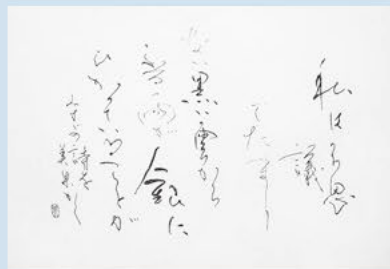 私は不思議
でたまらない
黒い雲から
ふる雨が銀に
ひかっていることが
みすゞの詩を